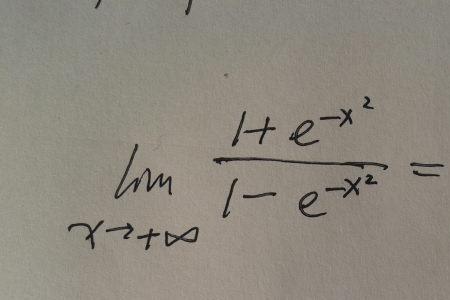 lim_{x→+∞} \frac{1+e^{-x^2}}{1-e^{-x^2}} =